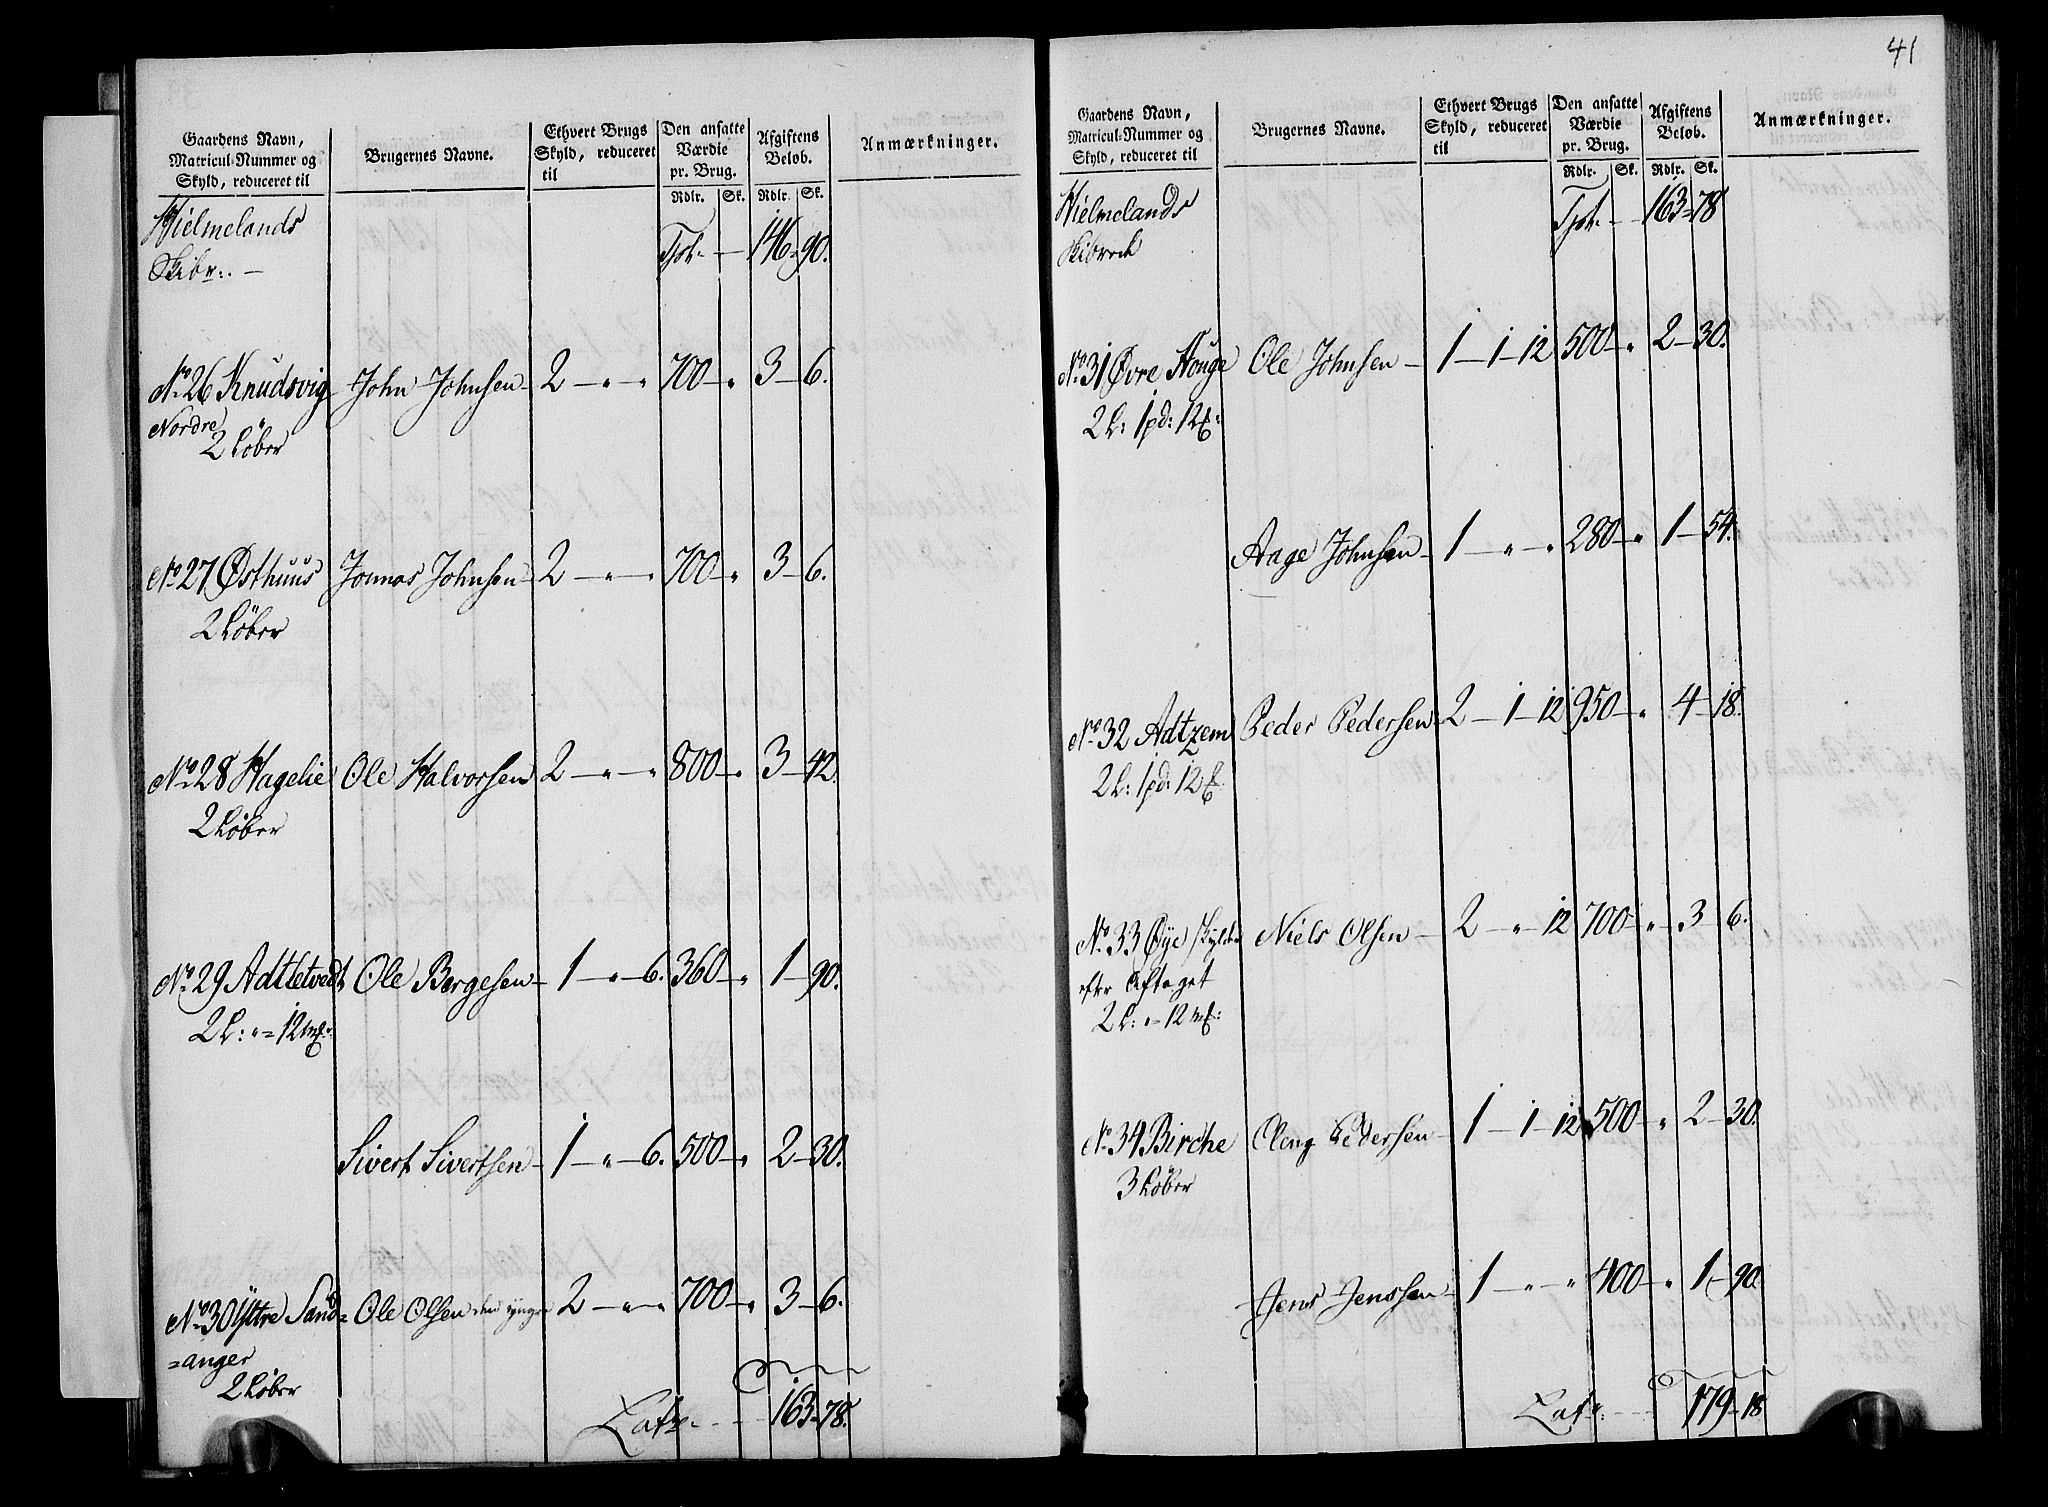 Gaardens Navn, Matricul-Nummer og Skyld, reduceret til | Brugernes Navne. | Ethvert Brugs Skyld, reduceret til | Den ansatte Værdie pr. Brug. Rdlr. Sk. | Afgiftens Beløb. Rdlr. Sk. | Anmærkninger.
Hielmelands Tpt. — 146 = 90.
Skibr:. —
No 26 Knudsvig John Johnsen — 2 — „ — „ 700 — „ 3 — 6.
Nordre
2 Løber
No 27 Østhuus Jonnas Johnsen — 2 — „ — „ 700 — „ 3 — 6.
2 Løber
No 28 Hagelie Ole Halvorsen 2 — „ — „ 800 — „ 3 — 42.
2 Løber
No 29 Adtletvedt Ole Borgesen — 1 — „ — 6. 360 — „ 1 — 90.
2 L: „ = 12 m℔:
Sivert Sivertsen — 1 — „ — 6. 500 — „ 2 — 30.
No 30 Yttre Sand= Ole Olsen den yngre 2 — „ — „ 700 — „ 3 — 6.
=anger
2 Løber
Latr. — 163 = 78.
41
Gaardens Navn, Matricul-Nummer og Skyld, reduceret til | Brugernes Navne. | Ethvert Brugs Skyld, reduceret til | Den ansatte Værdie pr. Brug. Rdlr. Sk. | Afgiftens Beløb. Rdlr. Sk. | Anmærkninger.
Hielmelands Tpt. — 163 = 78
Skibrede
No 31 Øvre Houge Ole Johnsen — 1 — 1 — 12 500 — „ 2 — 30.
2 L: 1 pd: 12 ℔:
Aage Johnsen — 1 — „ — „ 280 — „ 1 — 54.
No 32 Adtzem Peder Pedersen — 2 — 1 — 12 950 — „ 4 — 18.
2 L: 1 pd: 12 ℔.
No 33 Øye skylder Niels Olsen — 2 — „ — 12 700 — „ 3 6.
efter Aftaget
2 L: „ = 12 m℔:
No 34 Birche Oleng Pedersen 1 — 1 — 12 500 — „ 2 — 30.
3 Løber
Jens Jenssen — 1 — „ — „ 400 — „ 1 — 90.
Latr. — 179 = 18